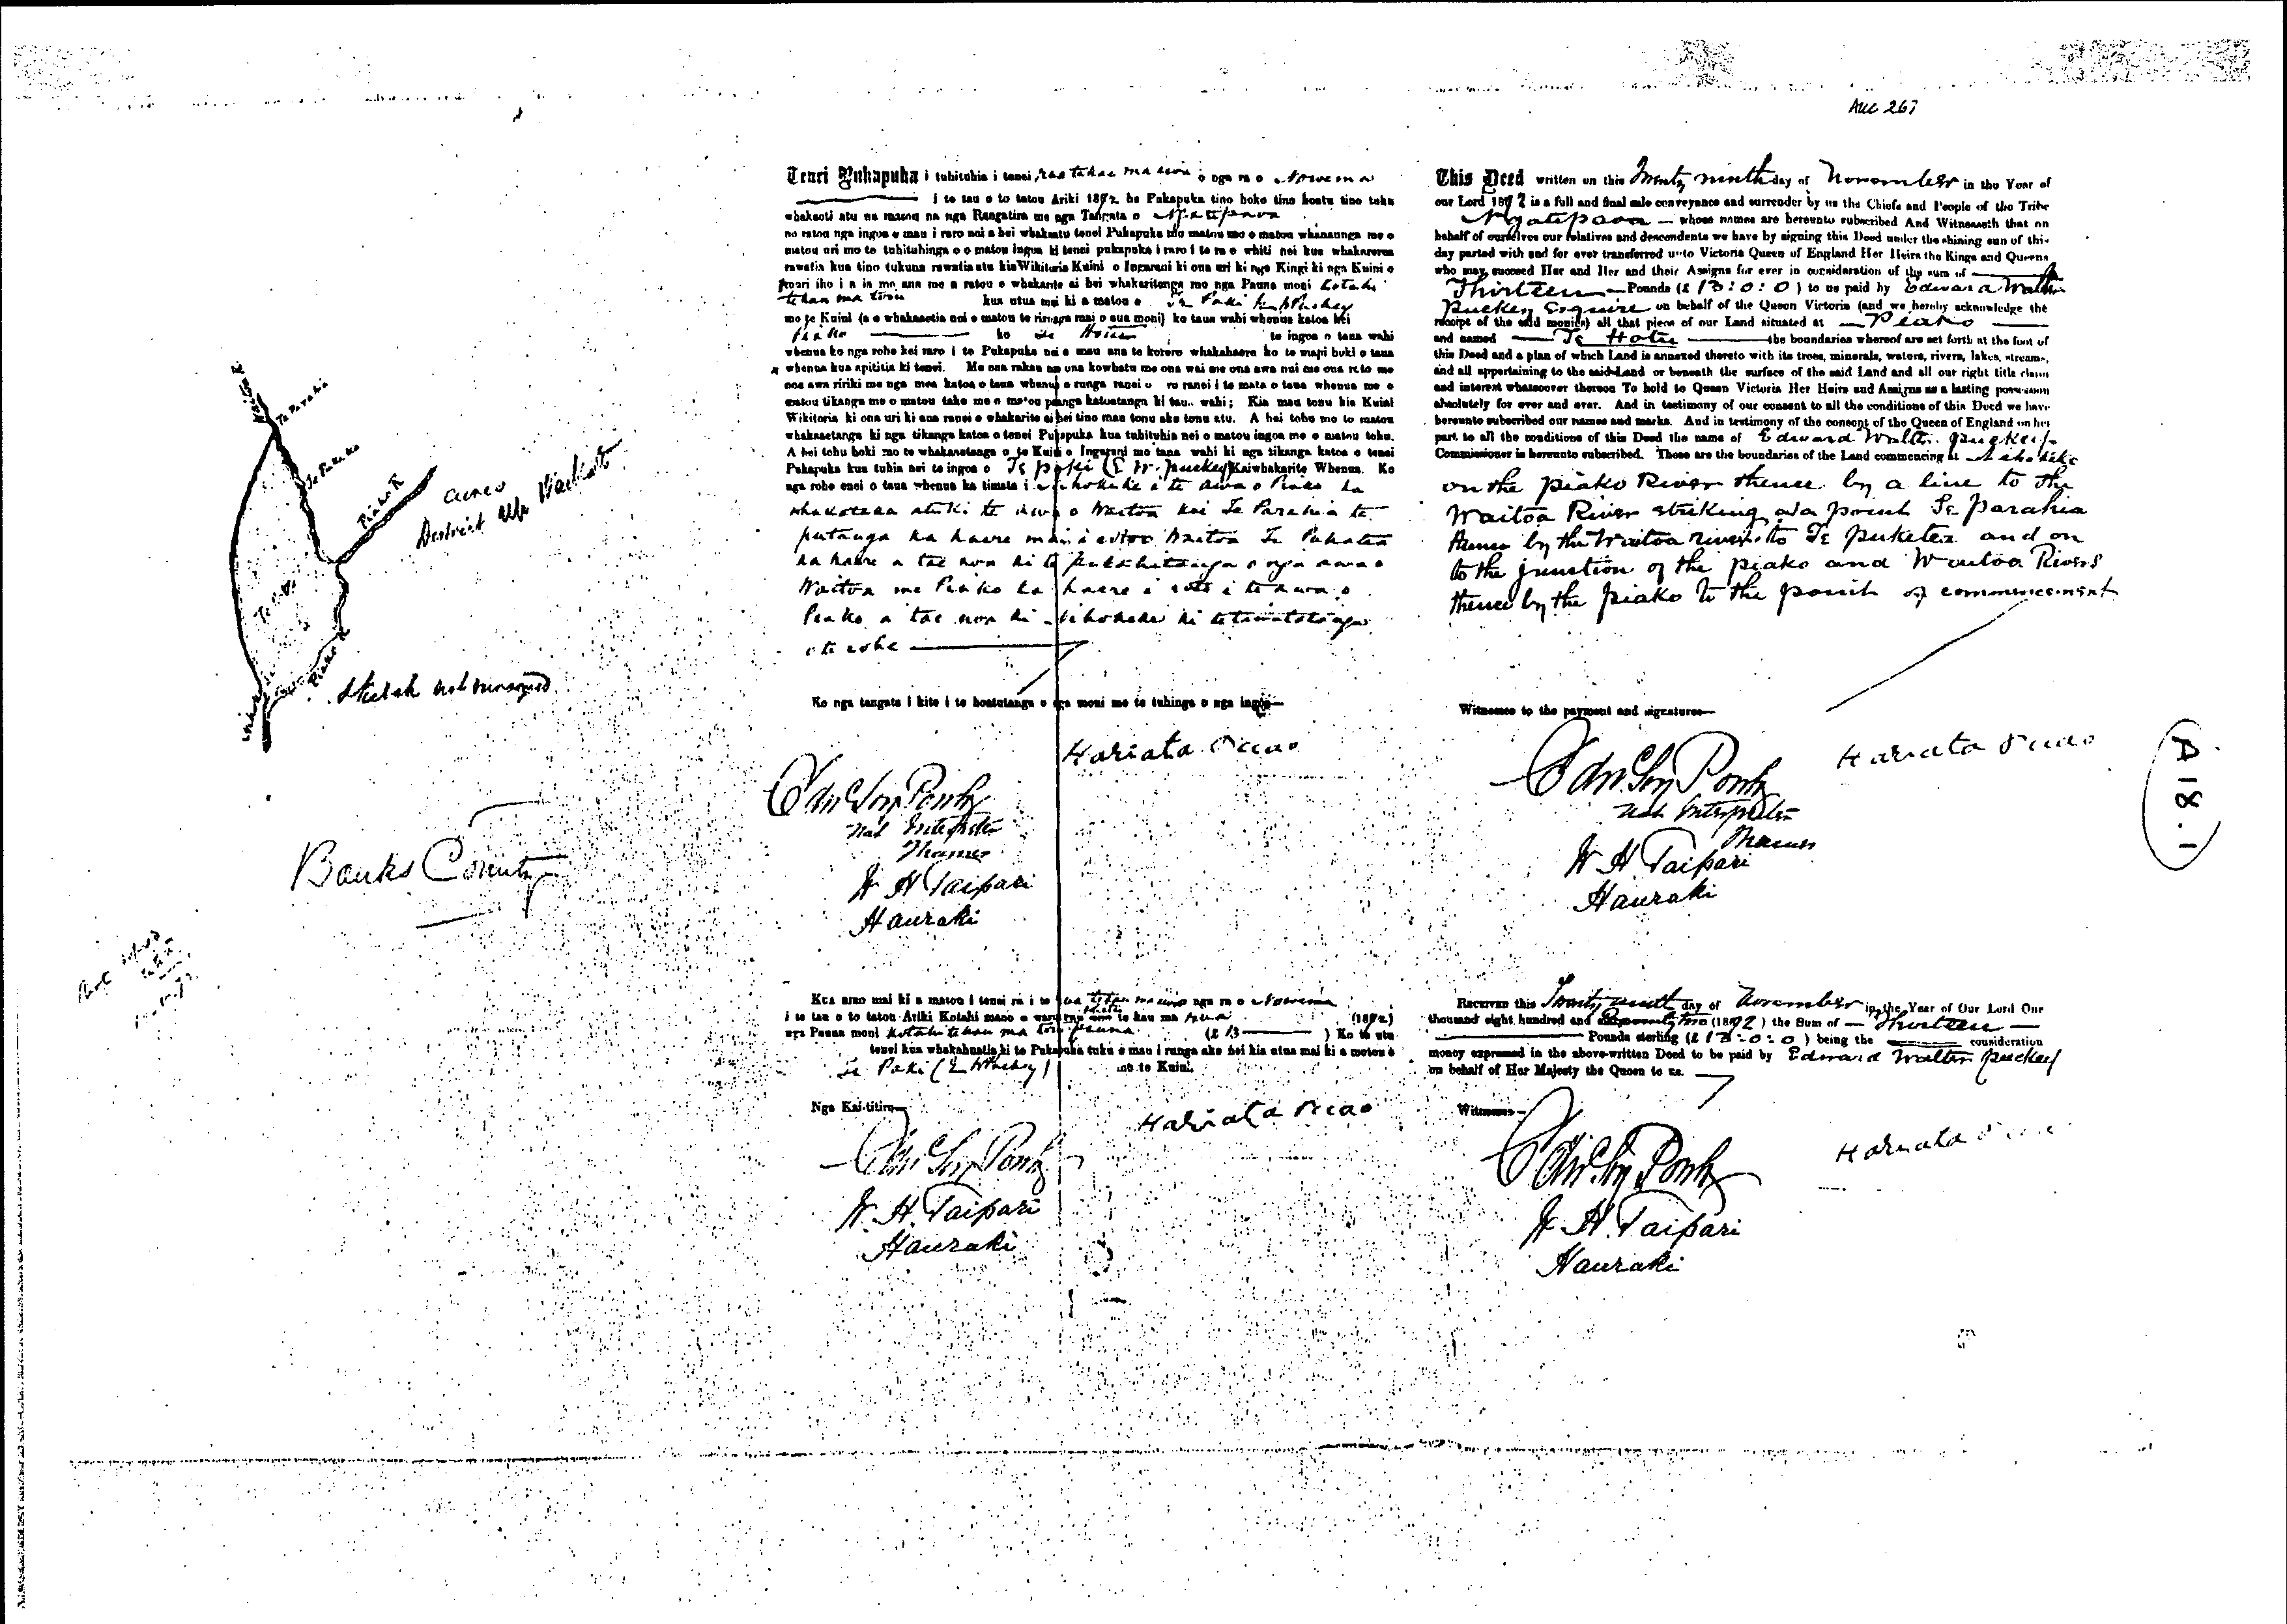 AUC 267
Waitoa R
Te Parahia
Piako R
acres
District Upr Waikato
Piako R
Sketch not surveyed
Banks County
Tenei Pukapuka i tuhituhia i tenei rua tekau ma iwa o nga ra o Nowema
i te tau o to tatou Ariki 1872 he Pukapuka tino hoko tino hoatu tino tuku
whakaoti atu na matou na nga Rangatira me nga Tangata o Ngatipaoa
no ratou nga ingoa e mau i raro nei a hei whakaatu tenei Pukapuka mo matou mo o matou whanaunga me o
matou uri mo te tuhituhinga o o matou ingoa ki tenei pukapuka i raro i te ra e whiti nei kua whakarerea
rawatia kua tino tukuna rawatia atu kia Wikitoria Kuini o Ingarani ki ona uri ki nga Kingi ki nga Kuini o
muri iho i a ia me ana me a ratou e whakarite ai hei whakaritenga mo nga Pauna moni kotahi
tekau ma toru kua utua mai ki a matou e Te Paki
mo te Kuini (a e whakaaetia nei e matou te riringa mai o aua moni) ko taua wahi whenua katoa kei
Piako ko Te Hotu te ingoa o taua wahi
whenua ko nga rohe kei raro i te Pukapuka nei e mau ana te korero whakahaere ko te mapi hoki o taua
whenua kua apititia ki tenei. Me ona rakau me ona kowhatu me ona wai me ona awa nui me ona roto me
ona awa ririki me nga mea katoa o taua whenua o runga ranei o raro ranei i te mata o taua whenua me o
matou tikanga me o matou take me o matou paanga katoatanga ki taua wahi; Kia mau tonu kia Kuini
Wikitoria ki ona uri ki ana ranei e whakarite ai hei tino mau tonu ake tonu atu. A hei tohu mo to matou
whakaaetanga ki nga tikanga katoa o tenei Pukapuka kua tuhituhia nei o matou ingoa me o matou tohu.
A hei tohu hoki mo te whakaaetanga o te Kuini o Ingarani mo tana wahi ki nga tikanga katoa o tenei
Pukapuka kua tuhia nei te ingoa o Te Paki (E W. Puckey) Kaiwhakarite Whenua. Ko
nga rohe enei o taua whenua ka timata i i te awa o Piako ka
whakawaka atu ki te awa o Waitoa kei Te Parahia te
putanga ka haere mai i roto o Waitoa Te Puketea
ka haere a tae noa ki te putahitanga o nga awa o
Waitoa me Piako ka haere i roto i te awa o
Piako a tae noa ki ki te timatatanga
o te rohe
Ko nga tangata i kite i te hoatutanga o nga moni me te tuhinga o nga ingoa—
Hariata
Nat Interpreter
Thames
W H Taipari
Hauraki
Kua riro mai ki a matou i tenei ra i te rua tekau ma iwa o nga ra o Nowema
i te tau o to tatou Ariki Kotahi mano e waru rau te kau ma rua (1872)
nga Pauna moni kotahi tekau ma toru pauna (£ 13 ) Ko te utu
tenei kua whakahuatia ki te Pukapuka tuku e mau i runga ake nei kia utua mai ki a matou e
Te Paki (E W Puckey) mo te Kuini.
Nga Kai-titiro—
Hariata
W. H. Taipari
Hauraki
This Deed written on this Twenty ninth day of November in the Year of
our Lord 1872 is a full and final sale conveyance and surrender by us the Chiefs and People of the Tribe
Ngatipaoa whose names are hereunto subscribed And Witnesseth that on
behalf of ourselves our relatives and descendants we have by signing this Deed under the shining sun of this
day parted with and for ever transferred unto Victoria Queen of England Her Heirs the Kings and Queens
who may succeed Her and Her and their Assigns for ever in consideration of the sum of
Thirteen Pounds (£ 13:0:0) to us paid by Edward Walter
Puckey Esquire on behalf of the Queen Victoria (and we hereby acknowledge the
receipt of the said monies) all that piece of our Land situated at Piako
and named Te Hotu the boundaries whereof are set forth at the foot of
this Deed and a plan of which Land is annexed thereto with its trees, minerals, waters, rivers, lakes, streams,
and all appertaining to the said Land or beneath the surface of the said Land and all our right title claim
and interest whatsoever thereon To hold to Queen Victoria Her Heirs and Assigns as a lasting possession
absolutely for ever and ever. And in testimony of our consent to all the conditions of this Deed we have
hereunto subscribed our names and marks. And in testimony of the consent of the Queen of England on her
part to all the conditions of this Deed the name of Edward Walter Puckey
Commissioner is hereunto subscribed. These are the boundaries of the Land commencing at
on the Piako River thence by a line to the
Waitoa River striking at a point Te Parahia
thence by the Waitoa river to Te Puketea and on
to the junction of the Piako and Waitoa Rivers
thence by the Piako to the point of commencement
Witnesses to the payment and signatures—
Hariata
Nat Interpreter
Thames
W H Taipari
Hauraki
Received this Twenty ninth day of November in the Year of Our Lord One
thousand eight hundred and Seventy two (1872) the Sum of Thirteen
Pounds sterling (£ 13-0-0) being the consideration
money expressed in the above-written Deed to be paid by Edward Walter Puckey
on behalf of Her Majesty the Queen to us.
Witnesses—
Hariata
W. H. Taipari
Hauraki